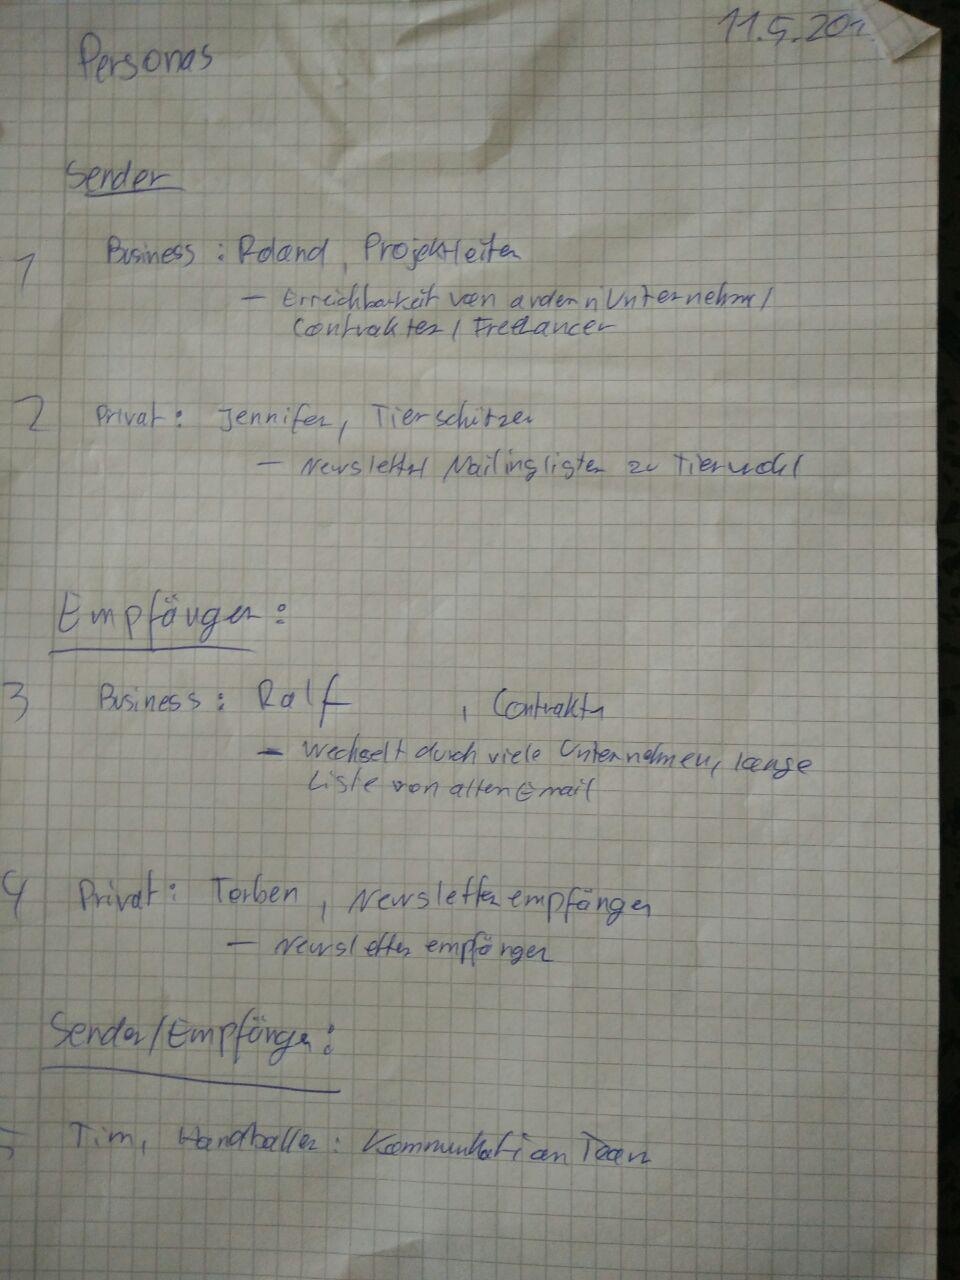 11.5.201
Personas
Sender
1 Business : Roland, Projektleiter
- Erreichbarkeit von andern Unternehm/
Contrakter/Freelancer
2 Privat: Jennifer, Tierschützer
- Newsletter/Mailinglisten zu Tierwohl
Empfänger:
3 Business: Ralf , Contrakter
- Wechselt durch viele Unternehmen, lange
Liste von alten Email
4 Privat: Torben, Newsletterempfänger
- Newsletterempfänger
Sender/Empfänger:
5 Tim, Handballer: Kommunikation Team